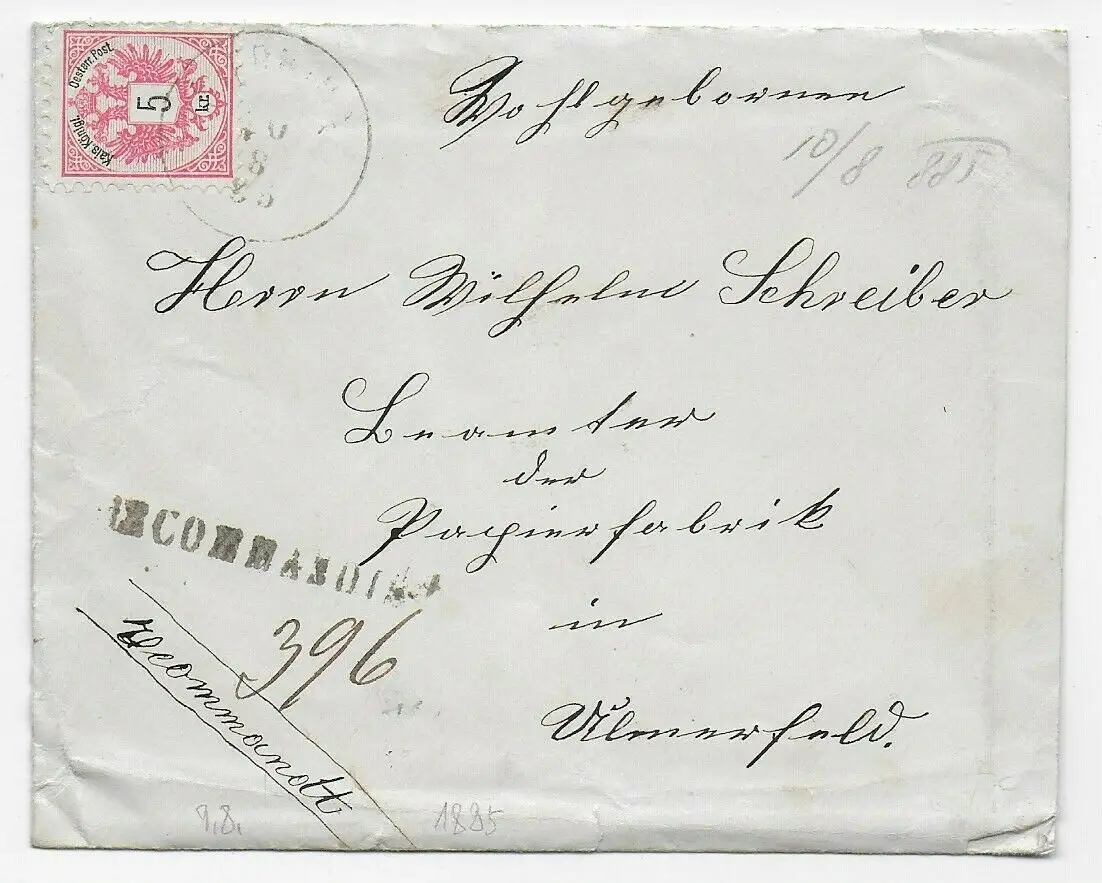 Kais. Königl. Oesterr. Post.
5 kr.
Wohlgebornen
10/8 885
Herrn Wilhelm Schreiber
Beamter
der
Papierfabrik
in
Ulmerfeld.
396
recommandt
1885